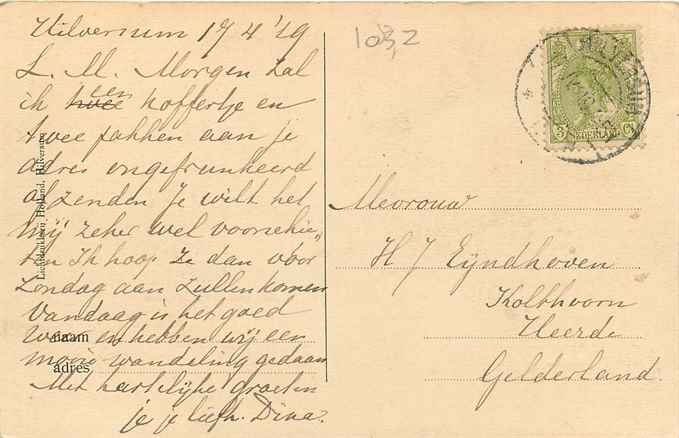 Hilversum 17 4 '19
L. M. Morgen zal
ik twee een koffertje en
twee pakken aan je
adres ongefrankeerd
afzenden Je wilt het
mij zeker wel voorschie„
ten Ik hoop ze dan voor
Zondag aan zullen komen
Vandaag is het goed
weer en hebben wij een
mooie wandeling gedaan
Met hartelijke groeten
je je liefh. Dina.
naam
adres
Hilversum
103,2
3 Ct
NEDERLAND
HILVERSUM
Mevrouw
H J Eyndhoven
Kolthoorn
Heerde
Gelderland.